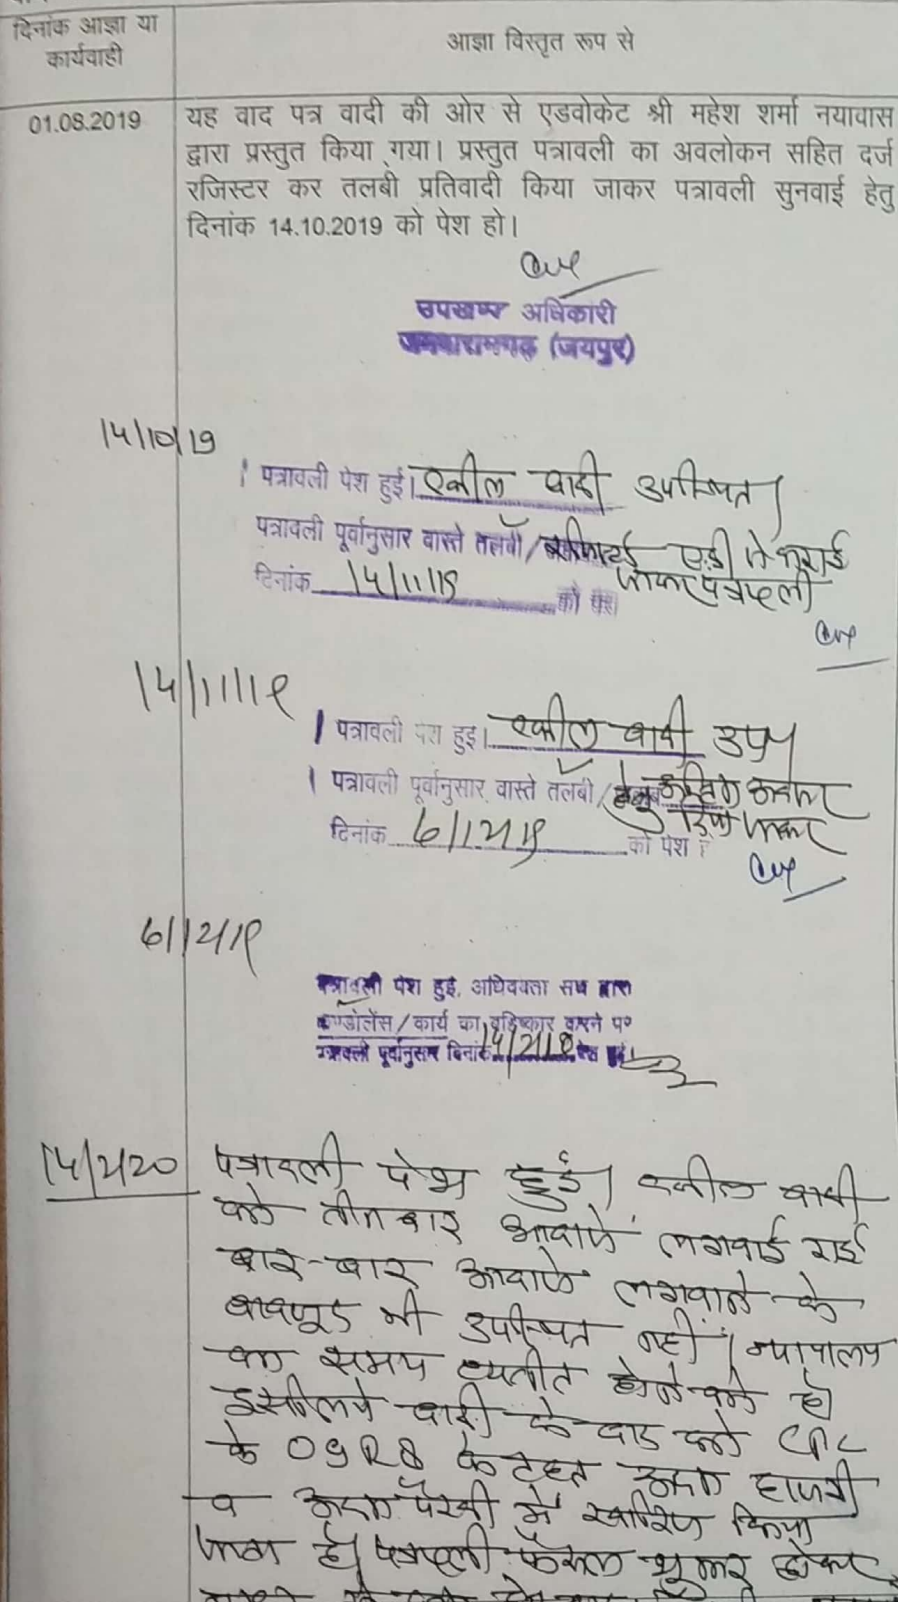 दिनांक आज्ञा या
कार्यवाही
आज्ञा विस्तृत रूप से
01.08.2019
यह वाद पत्र वादी की ओर से एडवोकेट श्री महेश शर्मा नयावास
द्वारा प्रस्तुत किया गया। प्रस्तुत पत्रावली का अवलोकन सहित दर्ज
रजिस्टर कर तलबी प्रतिवादी किया जाकर पत्रावली सुनवाई हेतु
दिनांक 14.10.2019 को पेश हो।
उपखण्ड अधिकारी
जमवारामगढ (जयपुर)
14/10/19
पत्रावली पेश हुई। वकील वादी उपस्थित।
पत्रावली पूर्वानुसार वास्ते तलबी / एडी से कराई
जाकर पत्रावली
दिनांक 14/11/19 को पेश
14/11/19
पत्रावली पेश हुई। वकील वादी उप॰
पत्रावली पूर्वानुसार वास्ते तलबी / हेतु अन्तिम अवसर
दिया जाकर
दिनांक 6/12/19 को पेश
6/12/19
पत्रावली पेश हुई, अधिवक्ता संघ द्वारा
कण्डोलेंस / कार्य का बहिष्कार करने प॰
पत्रावली पूर्वानुसार दिनांक पेश
14/2/20
पत्रावली पेश हुई। वकील वादी
को तीन बार आवाजे लगवाई गई
बार-बार आवाजे लगवाने के
बावजूद भी उपस्थित नहीं। न्यायालय
का समय व्यतीत होने को है।
इसलिये वादी के वाद को CPC
के O9R8 के तहत अदम हाजरी
व अदम पैरवी में खारिज किया
जाता है। पत्रावली फैसल शुमार होकर